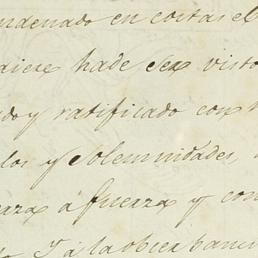 ndenado en costas el
diere hade ser visto
do y ratificado con
los y solemnidades,
erza á fuerza y con
y á la observanc